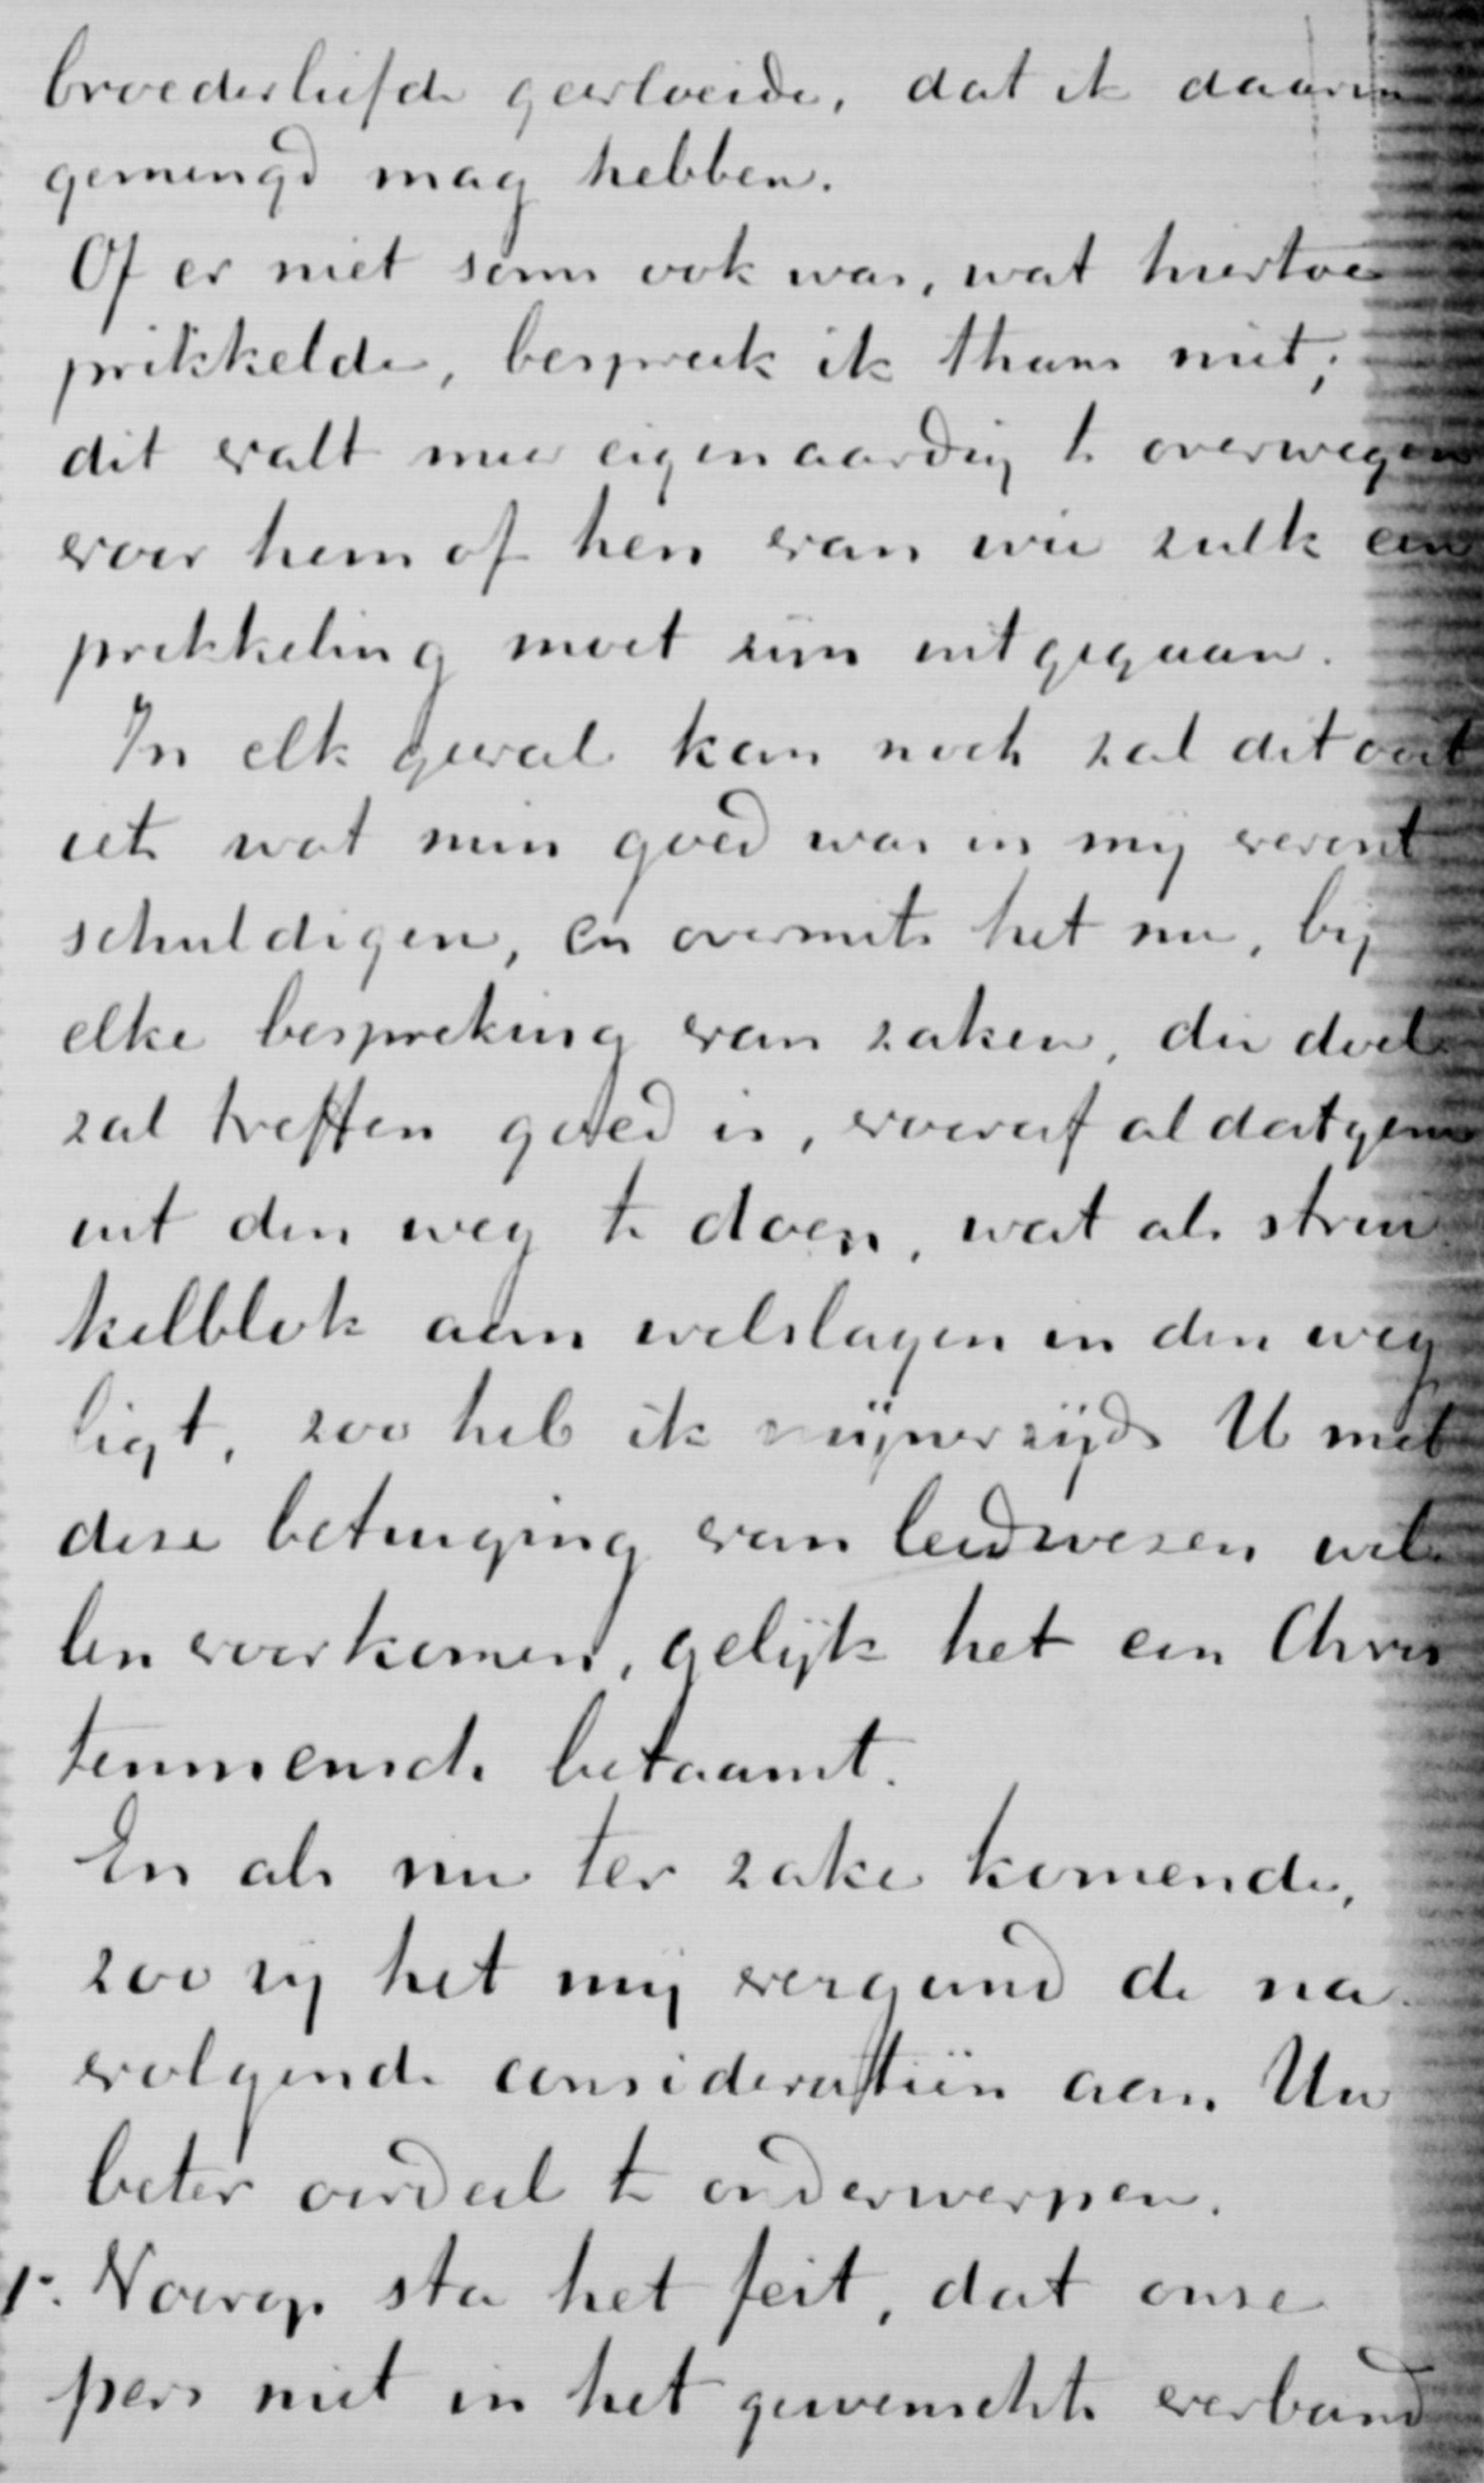 broederliefde gevloeide, dat ik daarin
gemengd mag hebben.
Of er niet soms ook was, wat hiertoe
prikkelde, bespreek ik thans niet;
dit valt meer eigenaardig te overwegen
voor hem of hen van wie zulk een
prikkeling moet zijn uitgegaan.
In elk geval kan noch zal dit ooit
iets wat min goed was in mij veront
schuldigen, en overmits het nu, bij
elke bespreking van zaken, die doel
zal treffen goed is, vooraf al datgene
uit den weg te doen, wat als strui
kelblok aan welslagen in den weg
ligt, zoo heb ik mijnerzijds U met
deze betuiging van leedwezen wil
len voorkomen, gelijk het een Chris
tenmensch betaamt.
En als nu ter zake komende,
zoo zij het mij vergund de na
volgende consideratiën aan Uw
beter oordeel te onderwerpen.
1º. Voorop sta het feit, dat onze
pers niet in het gewenschte verband